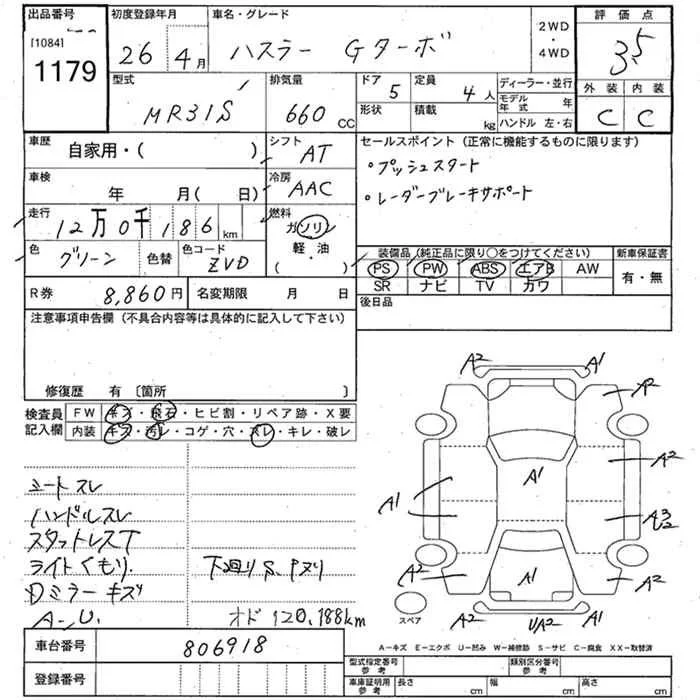 出品番号 初度登録年月 車名・グレード 2WD・4WD 評価点
[1084]
1179 26年 4月 ハスラー Gターボ 3.5
型式 排気量 ドア 5 定員 4人 ディーラー・並行 外装 内装
MR31S 660 CC 形状 積載 kg モデル年式 年 C C
ハンドル 左・右
車歴 自家用・( ) シフト AT セールスポイント (正常に機能するものに限ります)
車検 年 月( 日) 冷房 AAC ・プッシュスタート
・レーダーブレーキサポート
走行 12万0千186km 燃料 ガソリン
軽・油
( )
色 グリーン 色替 色コード ZVD 装備品 (純正品に限り○をつけてください) 新車保証書
PS PW ABS エアB AW 有・無
SR ナビ TV カワ
R券 8,860円 名変期限 月 日 後日品
注意事項申告欄 (不具合内容等は具体的に記入して下さい)
修復歴 有 〔箇所 〕
検査員記入欄 FW キズ・飛石・ヒビ割・リペア跡・X要
内装 キズ・汚レ・コゲ・穴・スレ・キレ・破レ
シートスレ
ハンドルスレ
スタットレスT
ライトくもり. 下廻りS、Pヌリ
Dミラーキズ
A-U. オド120,188km
A2 A1
A2
A1 A1 A2
A3
U2
A2 A1 A2
スペア A2 UA2 A1
A−キズ E−エクボ U−凹み W−補修跡 S−サビ C−腐食 XX−取替済
車台番号 806918
登録番号
型式指定番号 参考 類別区分番号 参考
車庫証明用 参考 長さ cm 幅 cm 高さ cm